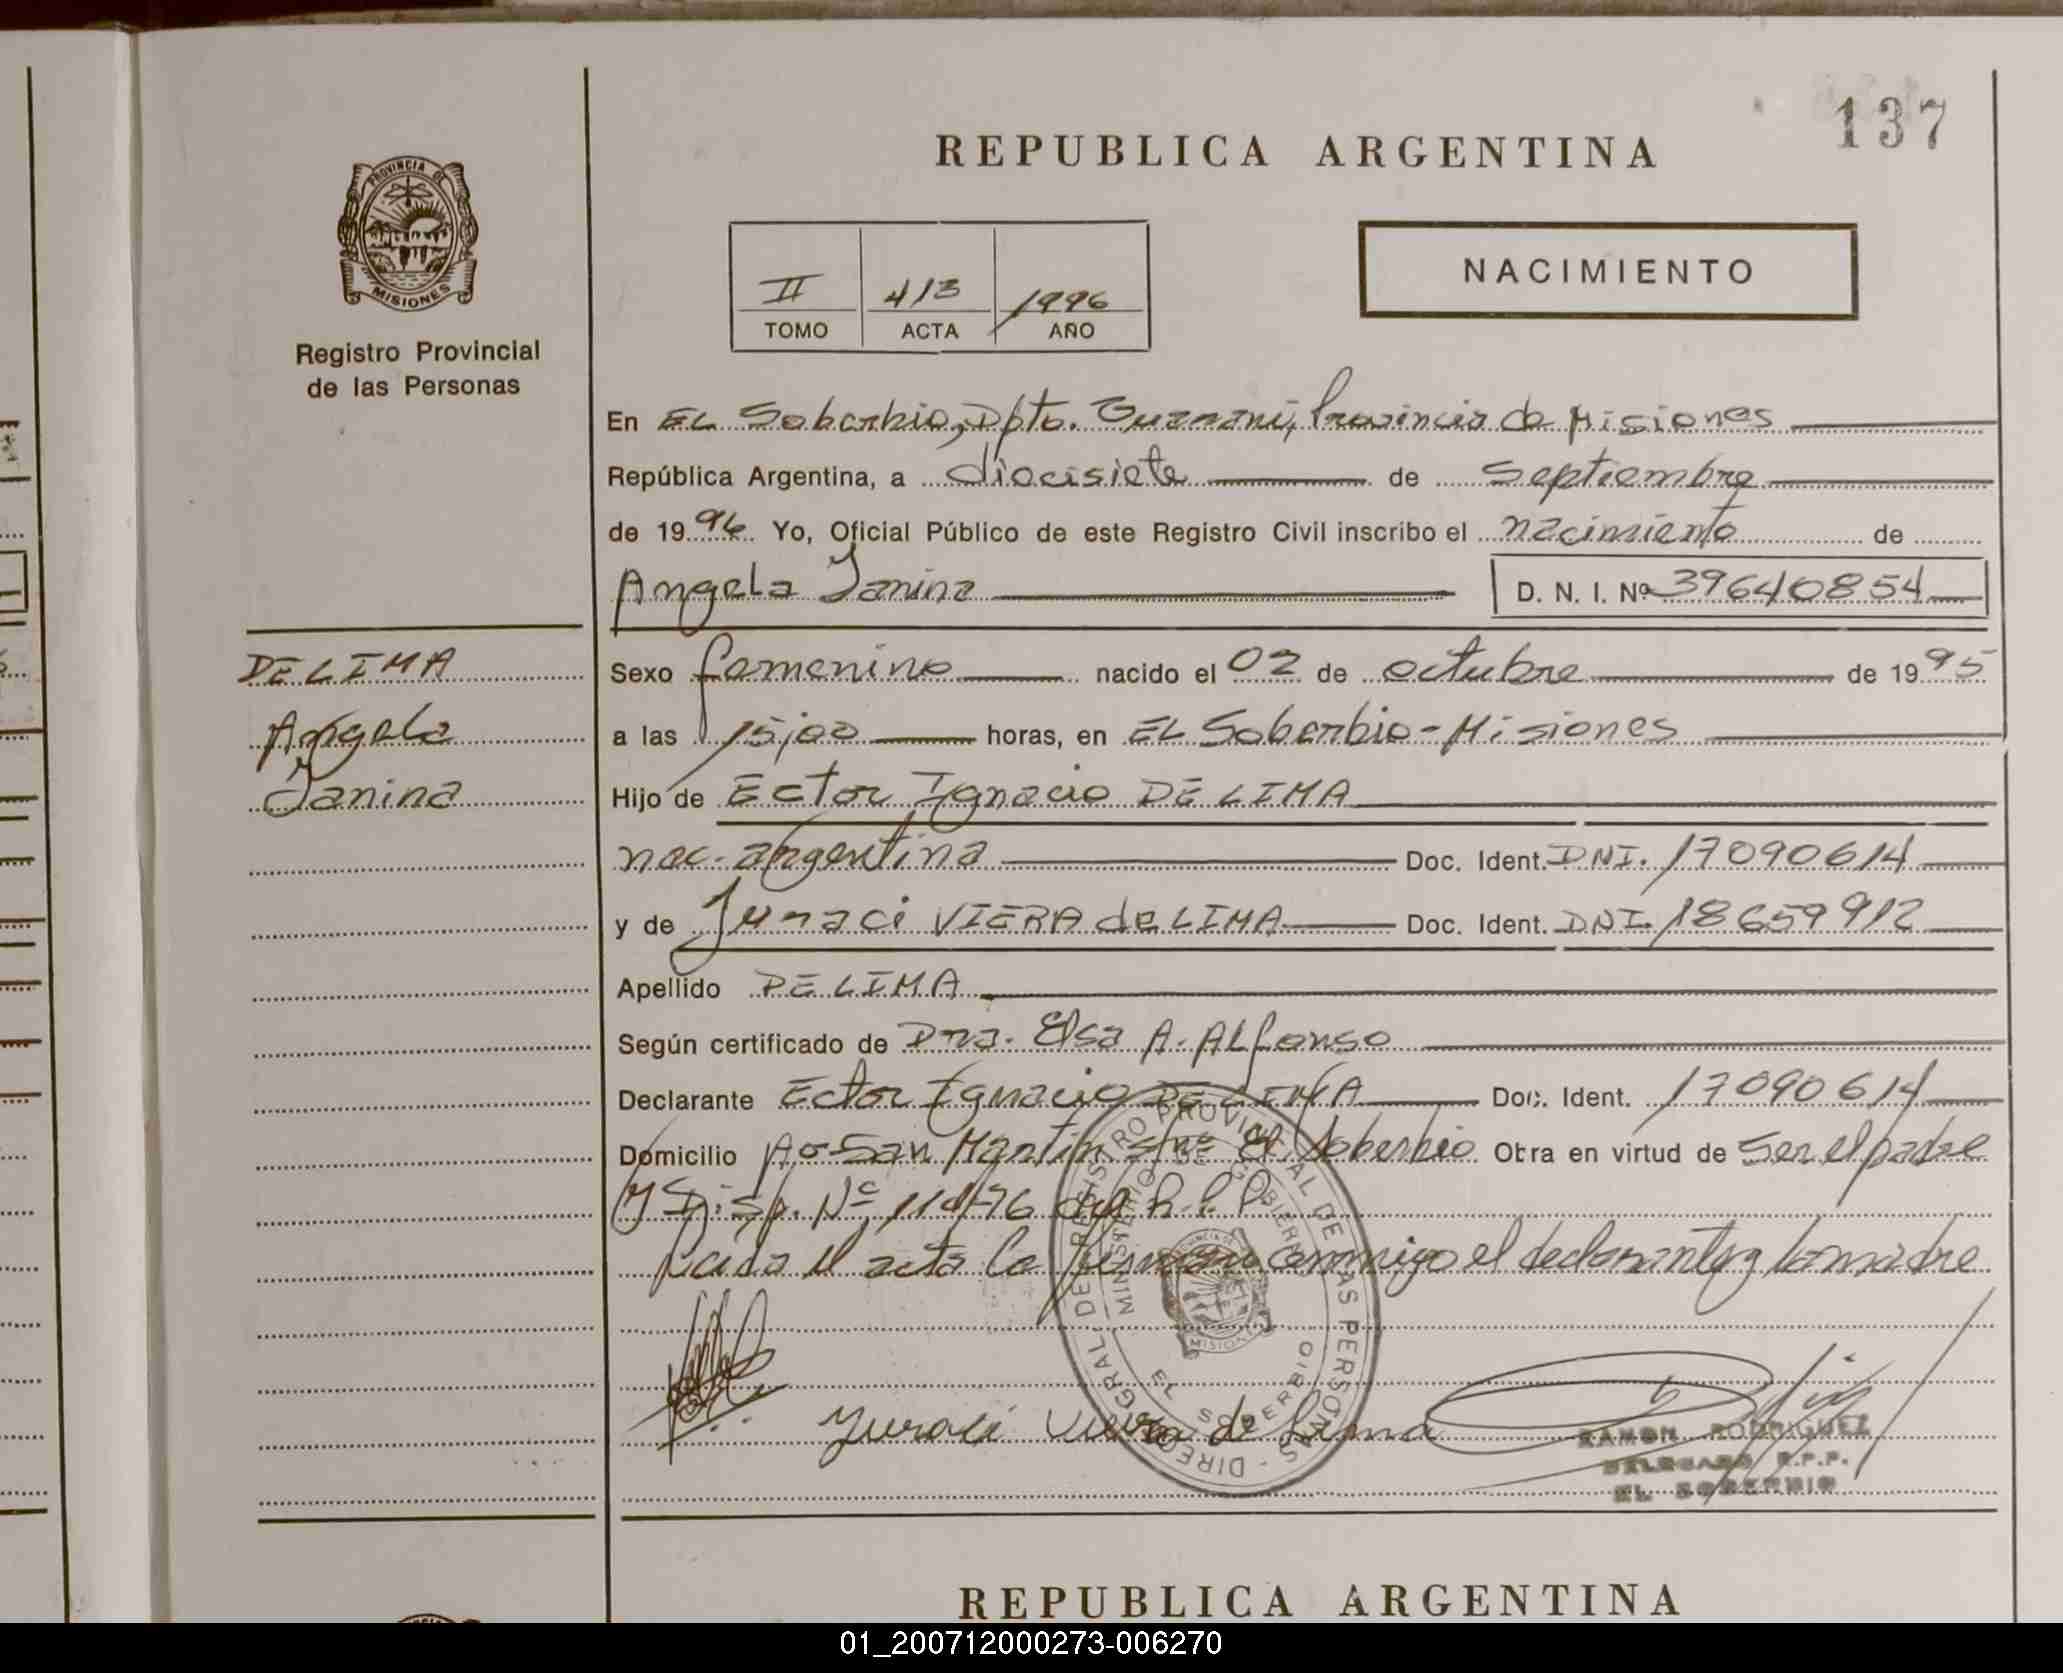 137
REPUBLICA ARGENTINA
PROVINCIA DE
MISIONES
Registro Provincial
de las Personas
II 413 1996
TOMO ACTA AÑO
NACIMIENTO
En EL Soberbio, Dpto. Guaraní, Provincia de Misiones
República Argentina, a diecisiete de Septiembre
de 1996 Yo, Oficial Público de este Registro Civil inscribo el nacimiento de
Angela Janina D. N. I. Nº 39640854
DE LIMA
Angela
Janina
Sexo femenino nacido el 02 de octubre de 1995
a las 15,00 horas, en EL Soberbio - Misiones
Hijo de Ector Ignacio DE LIMA
nac. argentina Doc. Ident. DNI. 17090614
y de Juraci VIERA de LIMA Doc. Ident. DNI. 18659912
Apellido DE LIMA
Según certificado de Dra. Elsa A. ALfonso
Declarante Ector Ignacio DE LIMA Doc. Ident. 17090614
Domicilio Aº San Martín s/nº El Soberbio Obra en virtud de Ser el padre
y Disp. Nº 114/76 del
el acta la firman conmigo el declarante y la madre
DIRECC. GRAL. DE REGISTRO PROVINCIAL DE LAS PERSONAS
MINISTERIO DE GOBIERNO
MISIONES
EL SOBERBIO
Juraci Viera de Lima
RAMON RODRIGUEZ
DELEGADO R.P.P.
EL SOBERBIO
REPUBLICA ARGENTINA
01_200712000273-006270